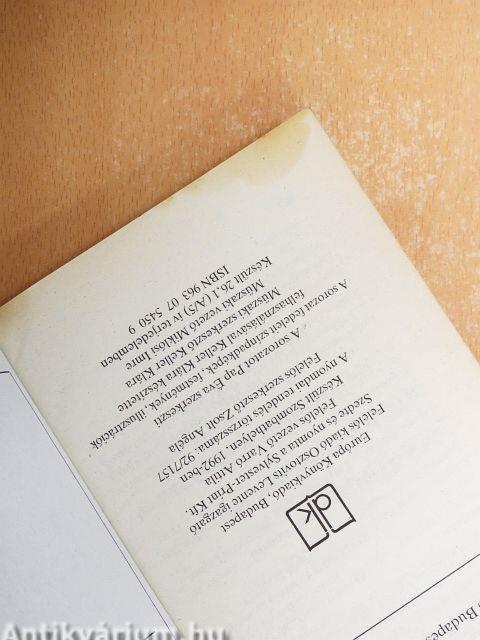 dk
Európa Könyvkiadó, Budapest
Felelős kiadó Osztovits Levente igazgató
Szedte és nyomta a Sylvester-Print Kft.
Felelős vezető Varró Attila
Készült Szombathelyen, 1992-ben
A nyomdai rendelés törzsszáma: 92/7157
Felelős szerkesztő Zsolt Angéla
A sorozatot Pap Éva szerkeszti
A sorozat fedelét színpadképek, festmények, illusztrációk
felhasználásával Keller Klára készítette
Műszaki szerkesztő Keller Klára
Műszaki vezető Miklósi Imre
Készült 26,1 (A/5) ív terjedelemben
ISBN 963 07 5450 9
Budapest
Antikvárium.hu